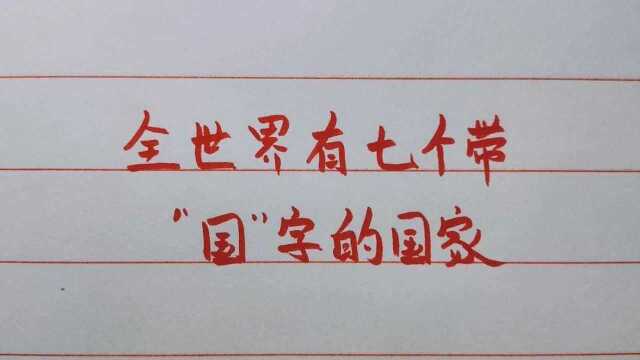 全世界有七个带
“国”字的国家